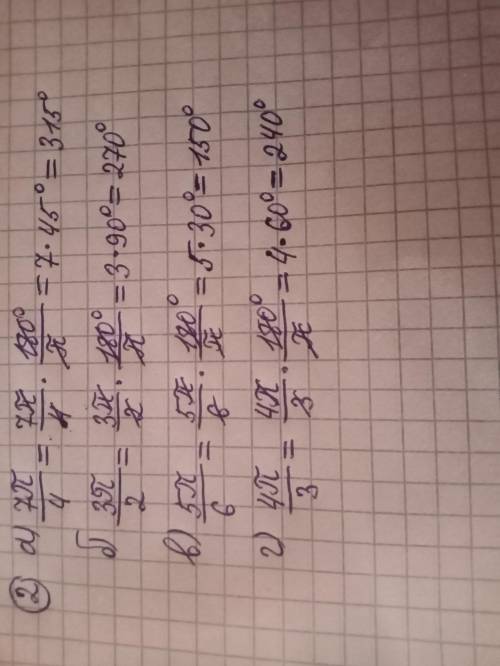 ② а) 7π/4 = 7π/4 · 180°/π = 7·45° = 315°
б) 3π/2 = 3π/2 · 180°/π = 3·90° = 270°
в) 5π/6 = 5π/6 · 180°/π = 5·30° = 150°
г) 4π/3 = 4π/3 · 180°/π = 4·60° = 240°